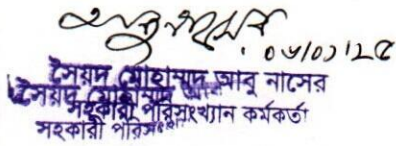 ০৬/০১/২৫
সৈয়দ মোহাম্মদ আবু নাসের
সৈয়দ মোহাম্মদ
সহকারী পরিসংখ্যান কর্মকর্তা
সহকারী পরিসং